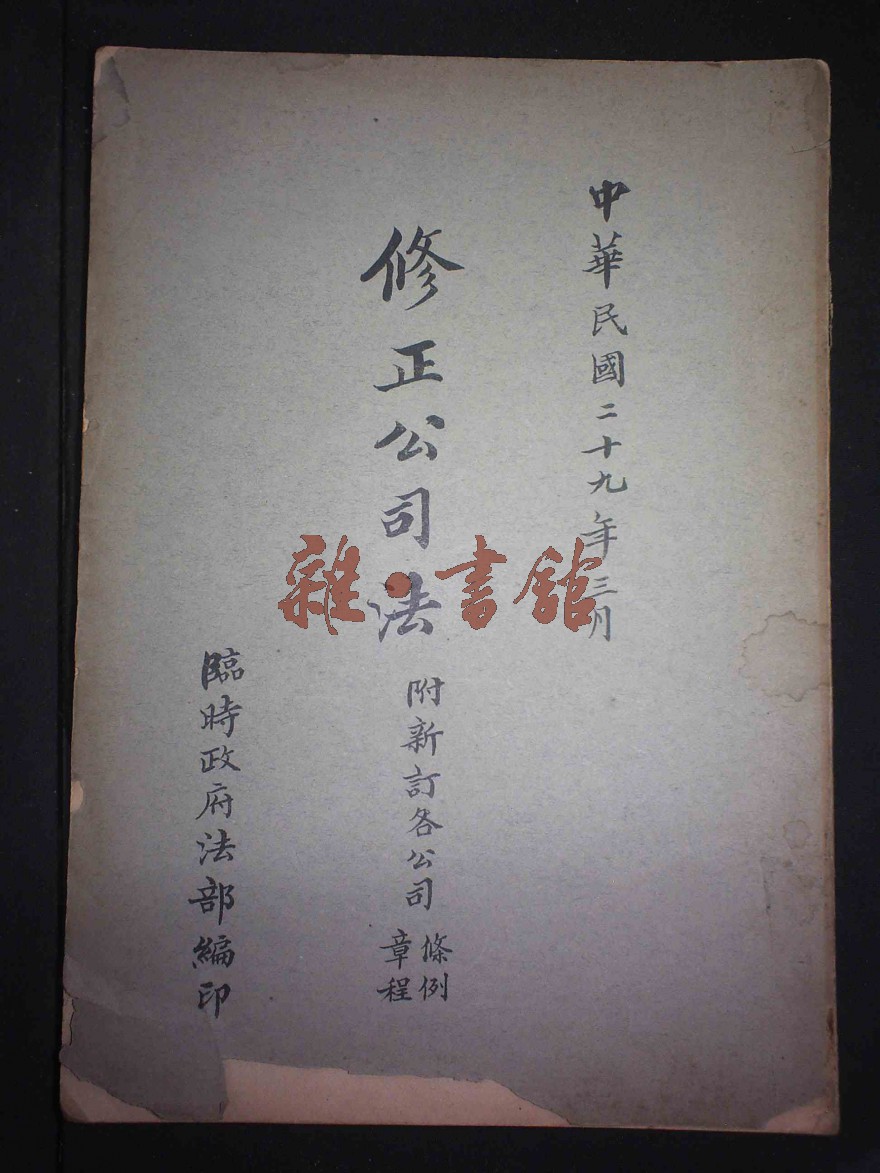 中華民國二十九年三月
修正公司法
附新訂各公司
條例
章程
臨時政府法部編印
雜·書館